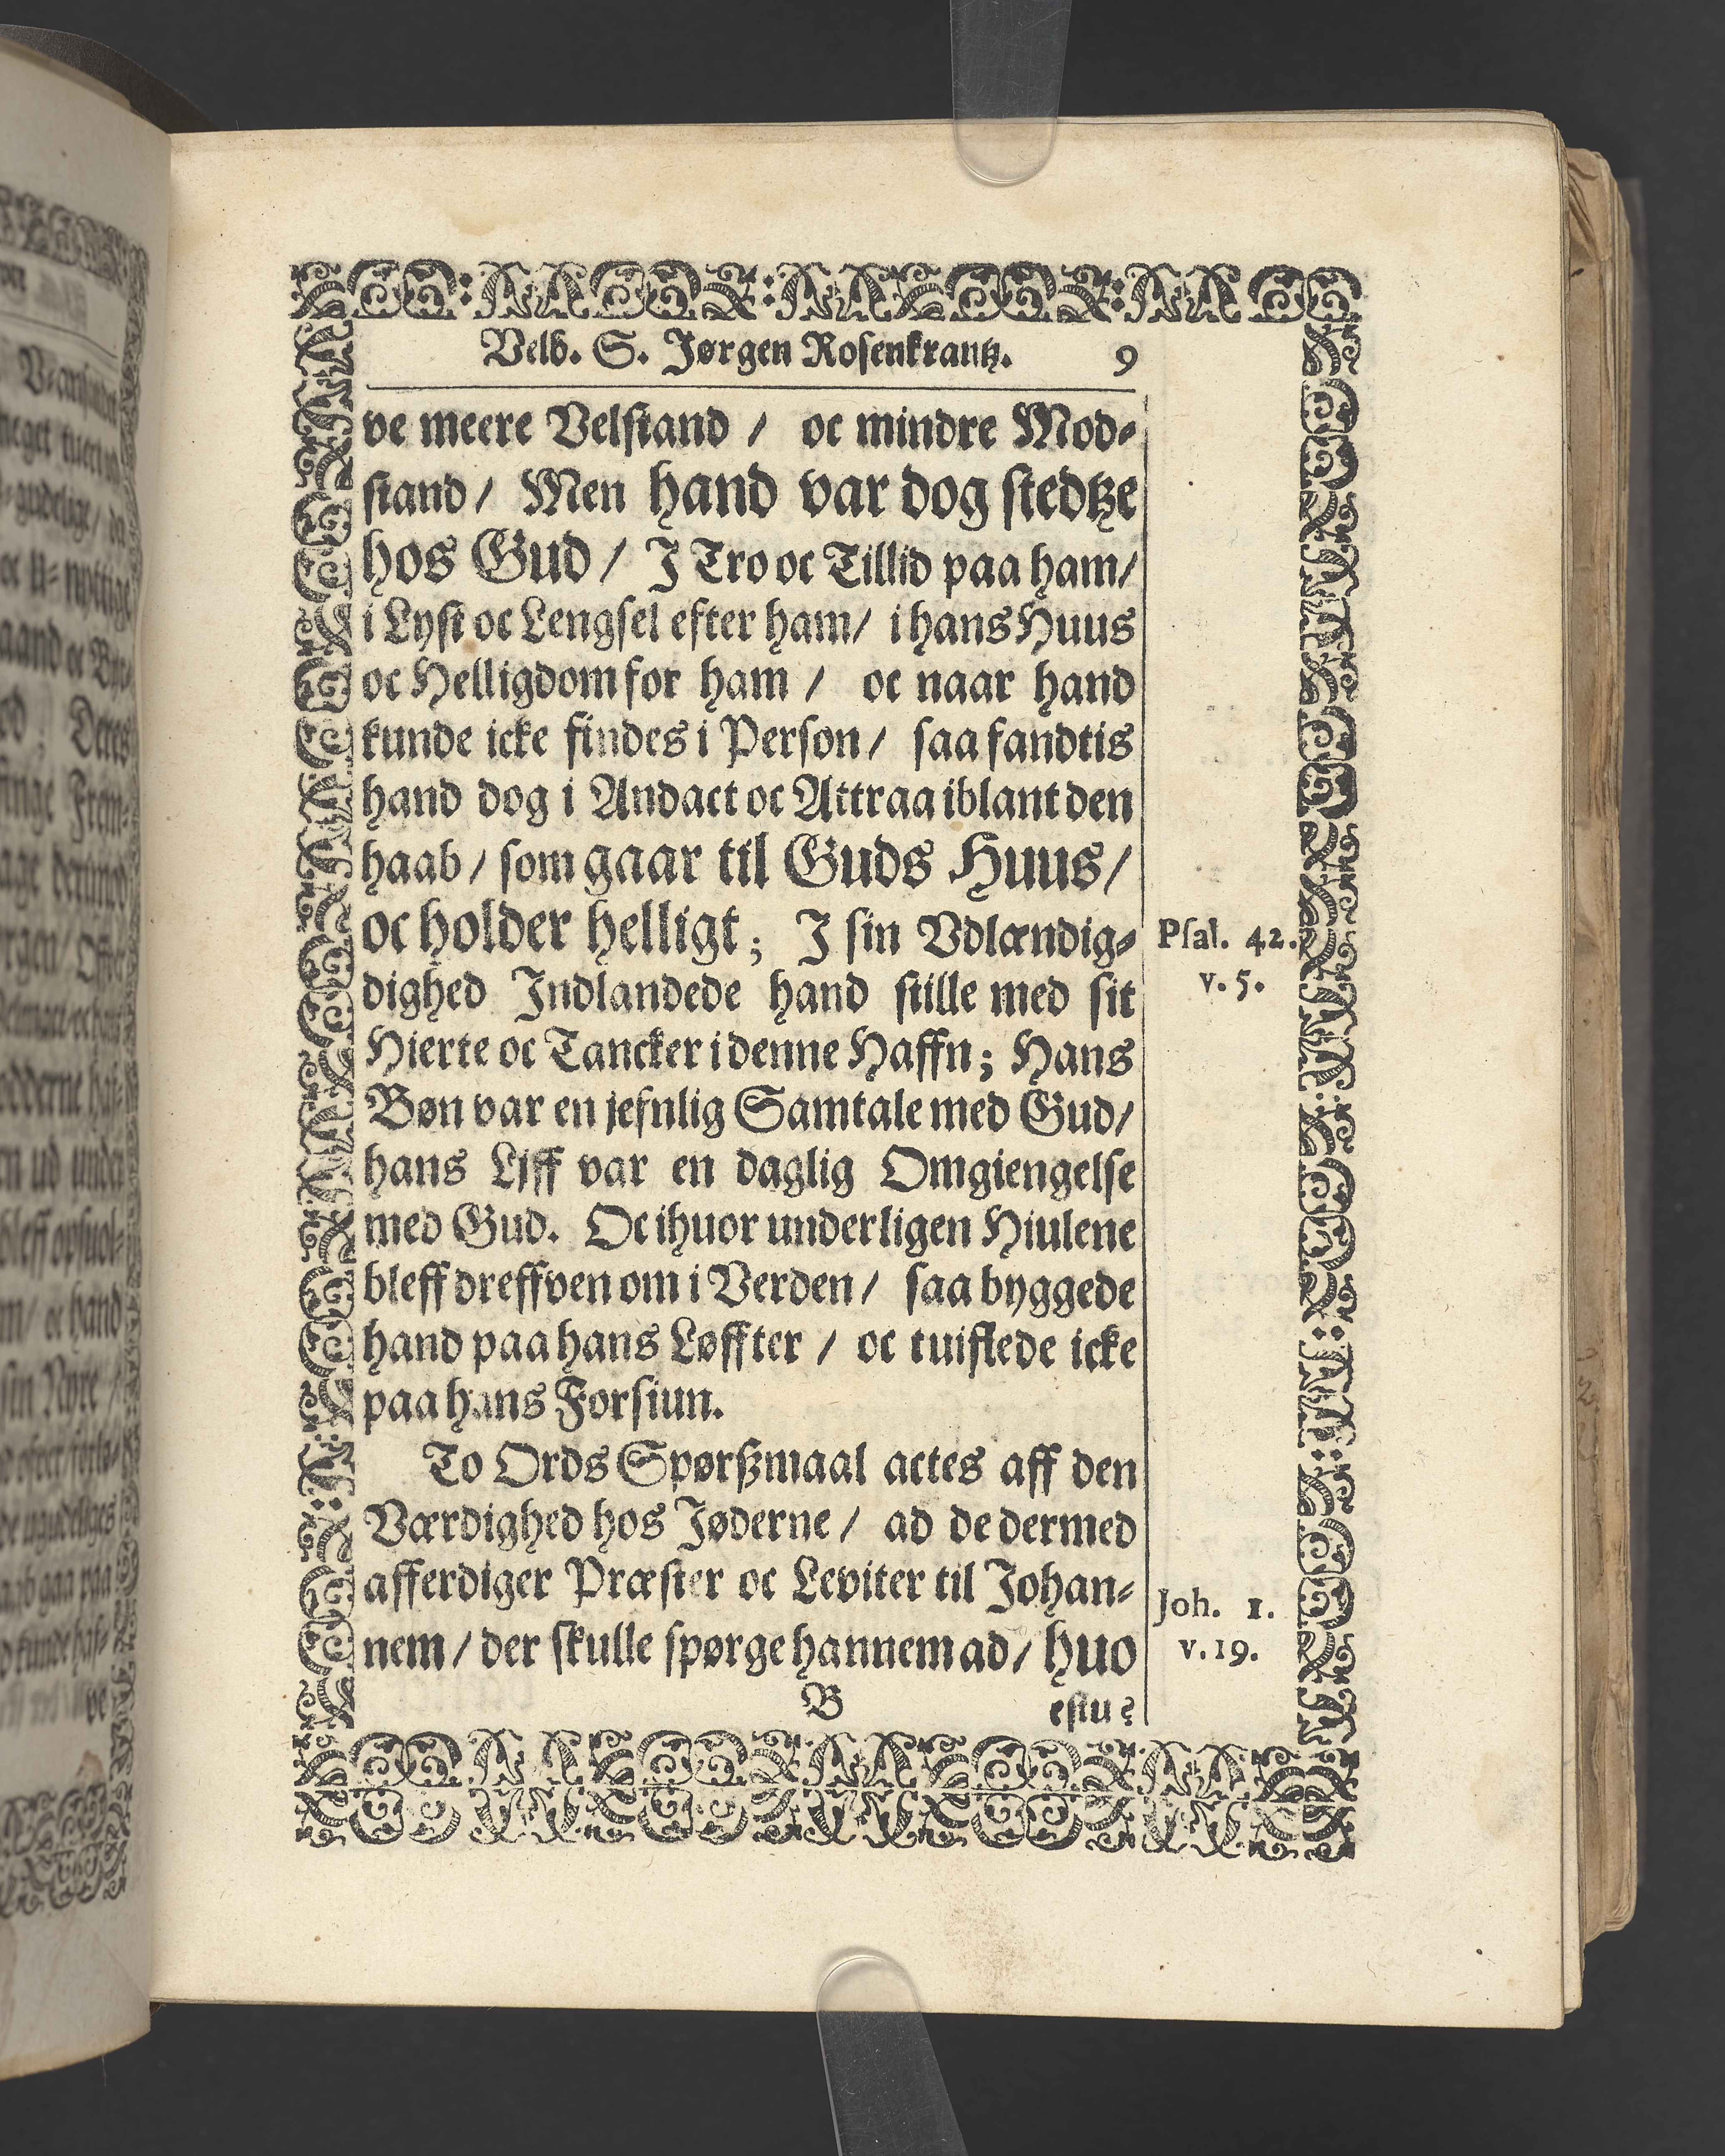 Velb. S. Jørgen Rosenkrantz. 9
ve meere Velstand / oc mindre Mod-
stand / Men hand var dog stedtze
hos Gud / J Tro oc Tillid paa ham /
i Lyst oc Lengsel efter ham / i hans Huus
oc Helligdom for ham / oc naar hand
kunde icke findes i Person / saa fandtis
hand dog i Andact oc Attraa iblant den
haab / som gaar til Guds Huus /
oc holder helligt; J sin Vdlændig-
dighed Indlandede hand stille med sit
Hierte oc Tancker i denne Haffn; Hans
Bøn var en jefnlig Samtale med Gud /
hans Liff var en daglig Omgiengelse
med Gud. Oc ihuor underligen Hiulene
bleff dreffven om i Verden / saa byggede
hand paa hans Løffter / oc tuiflede icke
paa hans Forsiun.
To Ords Spørßmaal actes aff den
Værdighed hos Jøderne / ad de dermed
afferdiger Præster oc Leviter til Johan-
nem / der skulle spørge hannem ad / huo
B estu?
Psal. 42.
v. 5.
Joh. 1.
v. 19.